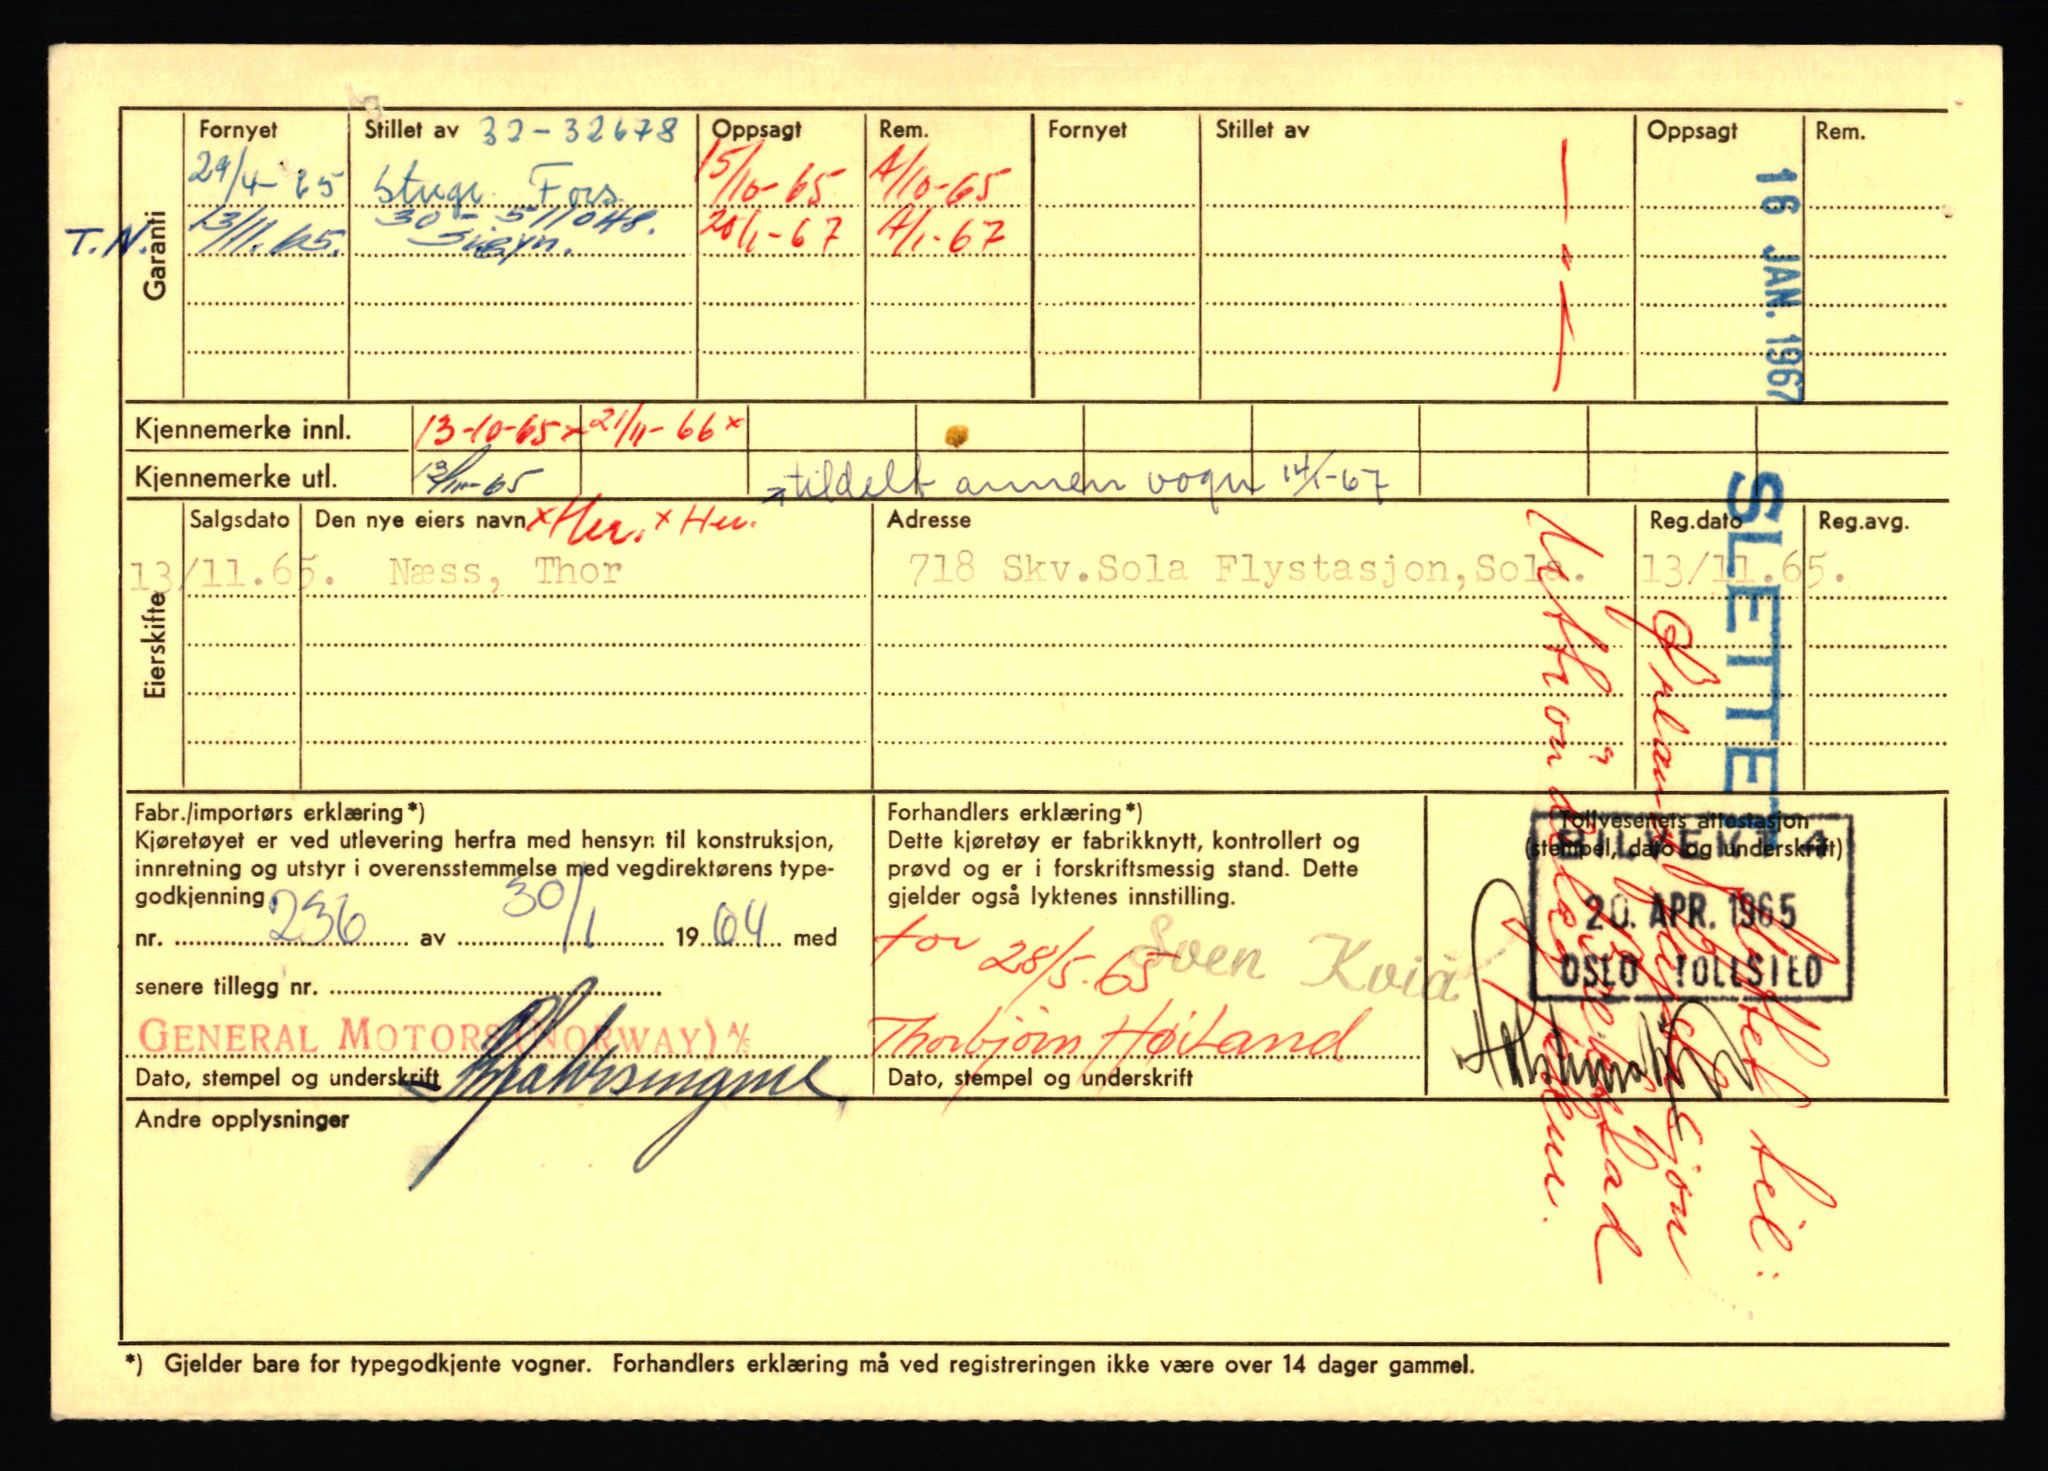 Fornyet Stillet av 32-32678 Oppsagt Rem. Fornyet Stillet av Oppsagt Rem.
29/4-65 Stuge. Fors. 15/10-65 A/10-65
30-511048.
T.N. 13/11.65. Sigyn. 20/1-67 A/1-67
Garanti
16 JAN. 1967
Kjennemerke innl. 13-10-65 x 21/11-66 x
Kjennemerke utl. 13/11-65 tildelt annen vogn 14/1-67
Salgsdato Den nye eiers navn x Her. x Her. Adresse Reg.dato Reg.avg.
13/11.65. Næss, Thor 718 Skv.Sola Flystasjon,Sola. 13/11.65.
Eierskifte
SLETTET
Fabr./importørs erklæring*)
Kjøretøyet er ved utlevering herfra med hensyn til konstruksjon,
innretning og utstyr i overensstemmelse med vegdirektørens type-
godkjenning
nr. 236 av 30/1 1964 med
senere tillegg nr.
GENERAL MOTORS (NORWAY) A/S
Dato, stempel og underskrift
Forhandlers erklæring*)
Dette kjøretøy er fabrikknytt, kontrollert og
prøvd og er i forskriftsmessig stand. Dette
gjelder også lyktenes innstilling.
for 28/5.65 Sven Kviå
Thorbjörn Høiland
Dato, stempel og underskrift
Tollvesenets attestasjon
(stempel, dato og underskrift)
BILVEKT 4
20. APR. 1965
OSLO TOLLSTED
til:
Andre opplysninger
*) Gjelder bare for typegodkjente vogner. Forhandlers erklæring må ved registreringen ikke være over 14 dager gammel.